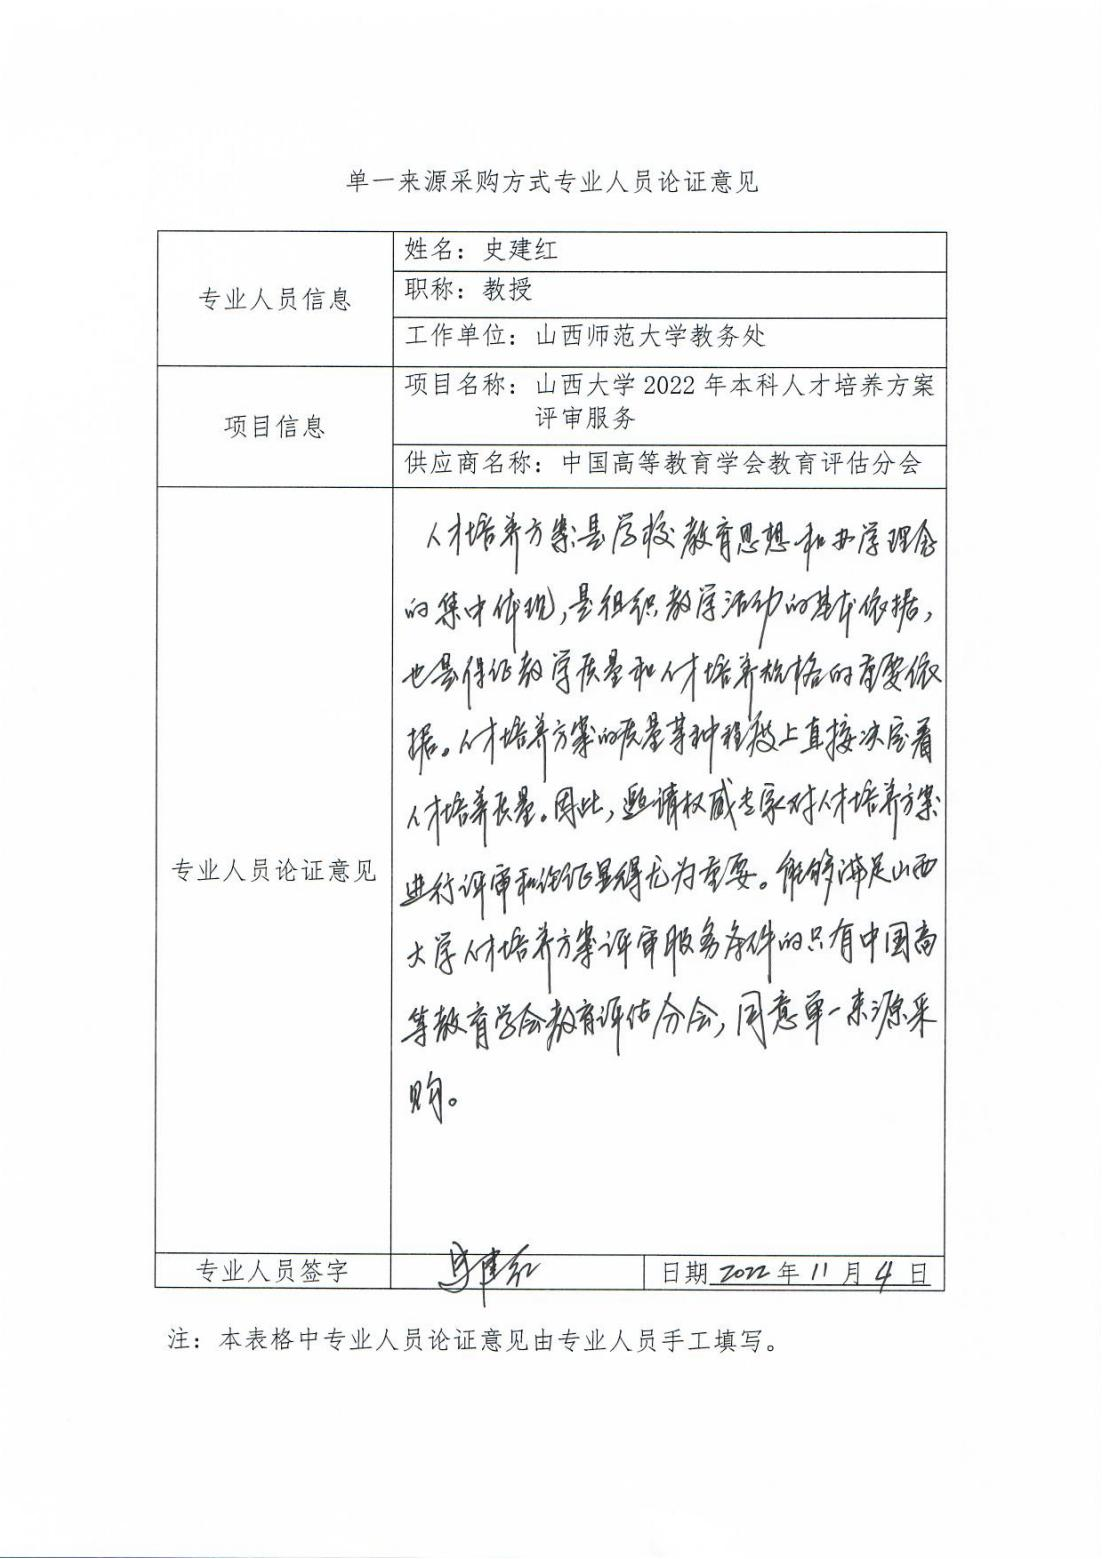 单一来源采购方式专业人员论证意见
专业人员信息
姓名：史建红
职称：教授
工作单位：山西师范大学教务处
项目信息
项目名称：山西大学2022年本科人才培养方案
评审服务
供应商名称：中国高等教育学会教育评估分会
专业人员论证意见
人才培养方案是学校教育思想和办学理念
的集中体现，是组织教学活动的基本依据，
也是保证教学质量和人才培养规格的重要依
据。人才培养方案的质量某种程度上直接决定着
人才培养质量。因此，邀请权威专家对人才培养方案
进行评审和论证显得尤为重要。能够满足山西
大学人才培养方案评审服务条件的只有中国高
等教育学会教育评估分会，同意单一来源采
购。
专业人员签字
史建红
日期 2022 年 11 月 4 日
注：本表格中专业人员论证意见由专业人员手工填写。